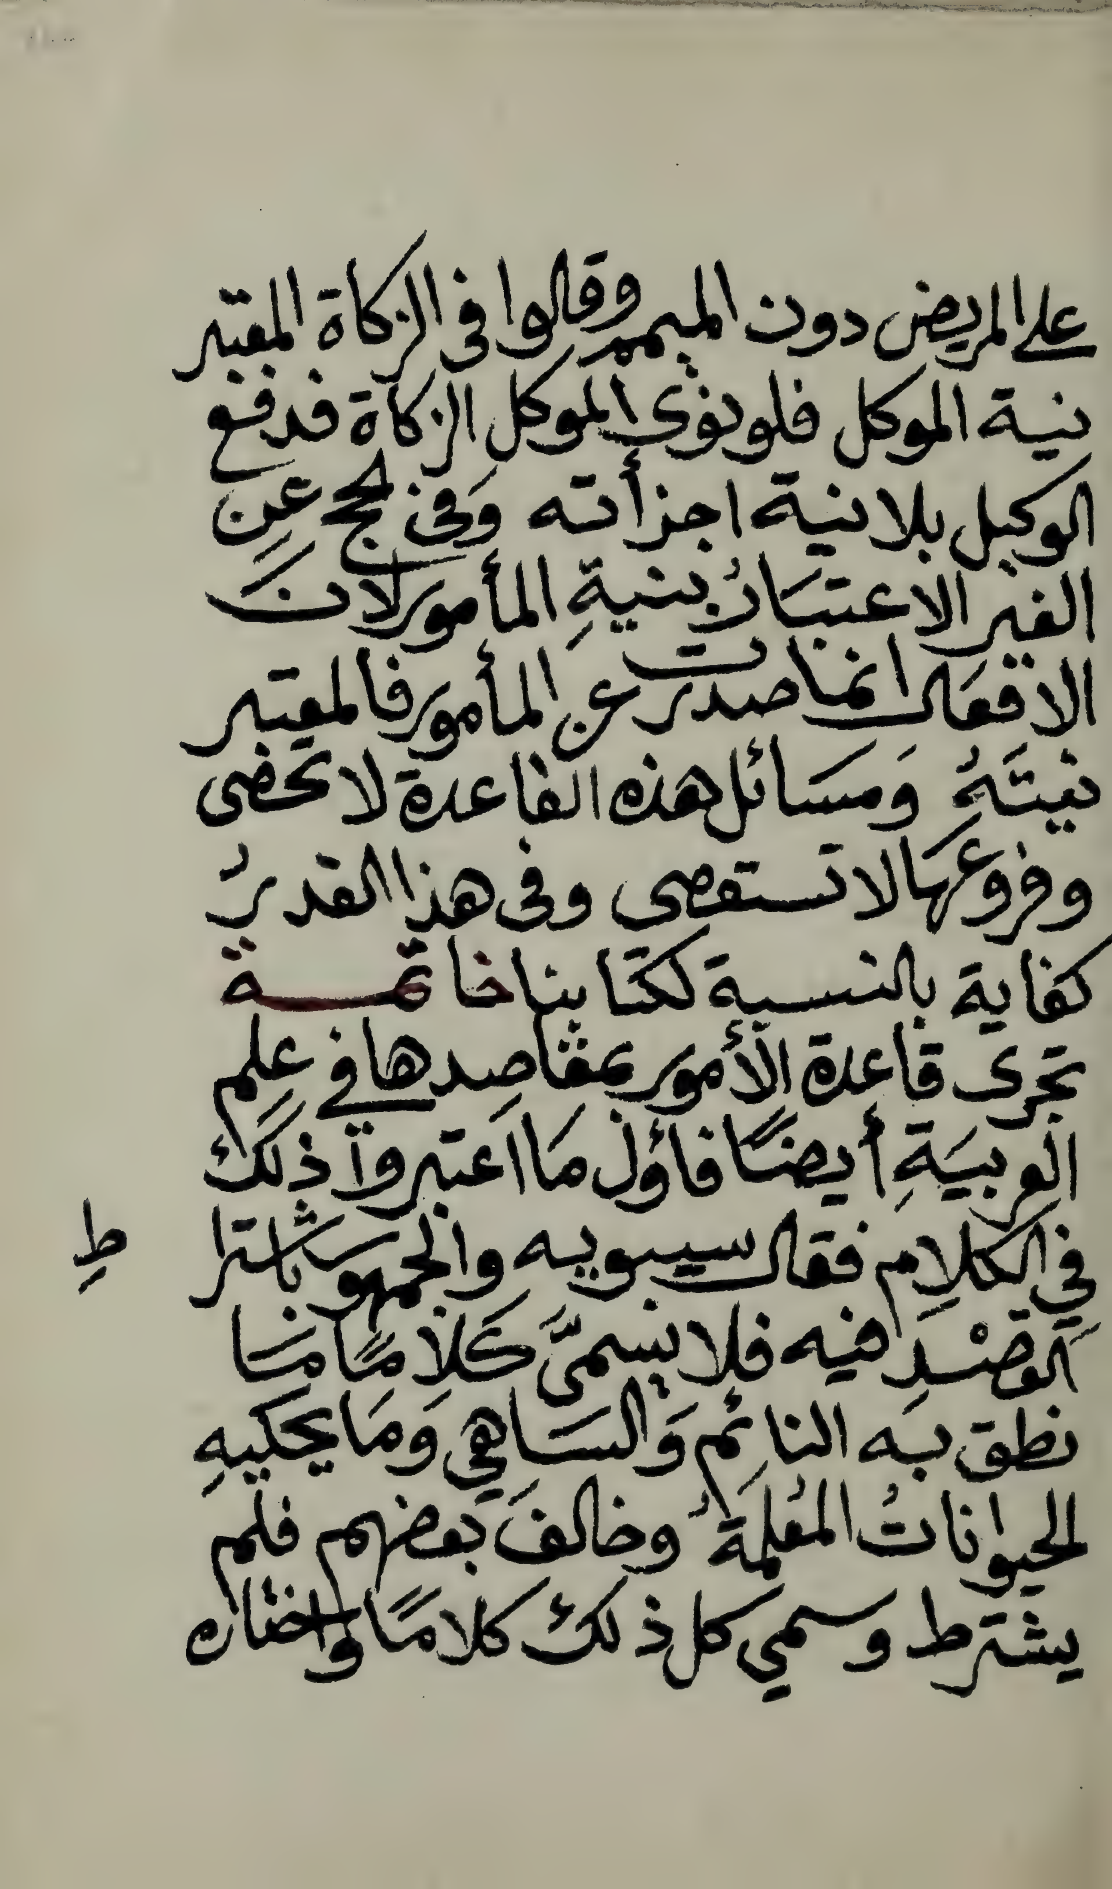 على المريض دون الميمم وقالوا في الزكاة المعتبر
نية الموكل فلو نوى الموكل الزكاة فدفع
الوكيل بلا نية اجزأته وَفي الحج عنِ
الغير الاعتبَارُ بنيةِ المأمور لانَ
الافعَال انمَا صدرت عن المأمور فالمعتبر
نيتَهُ وَمسَائل هذه القاعدة لا تحصى
وفروعهَا لا تستقصى وفى هذا القدرُ
كفاية بالنسبة لكتَابنا خاتمـــة
تجرى قاعدة الأمور بمقاصدها في علم
العربيَةِ أيضًا فأول مَا اعتبروا ذلكَ
في الكلام فقال سيبويه والجمهور باشترا
ط
القصْدِ فيه فلا يسمىَّ كَلَامًا مَا
نطق به النائم وَالسَاهِي وَمَا يحكيهِ
الحيواناتُ المُعلمَةُ وخالفَ بعضهم فلم
يشترط وسمي كل ذلك كلامًا واختاره